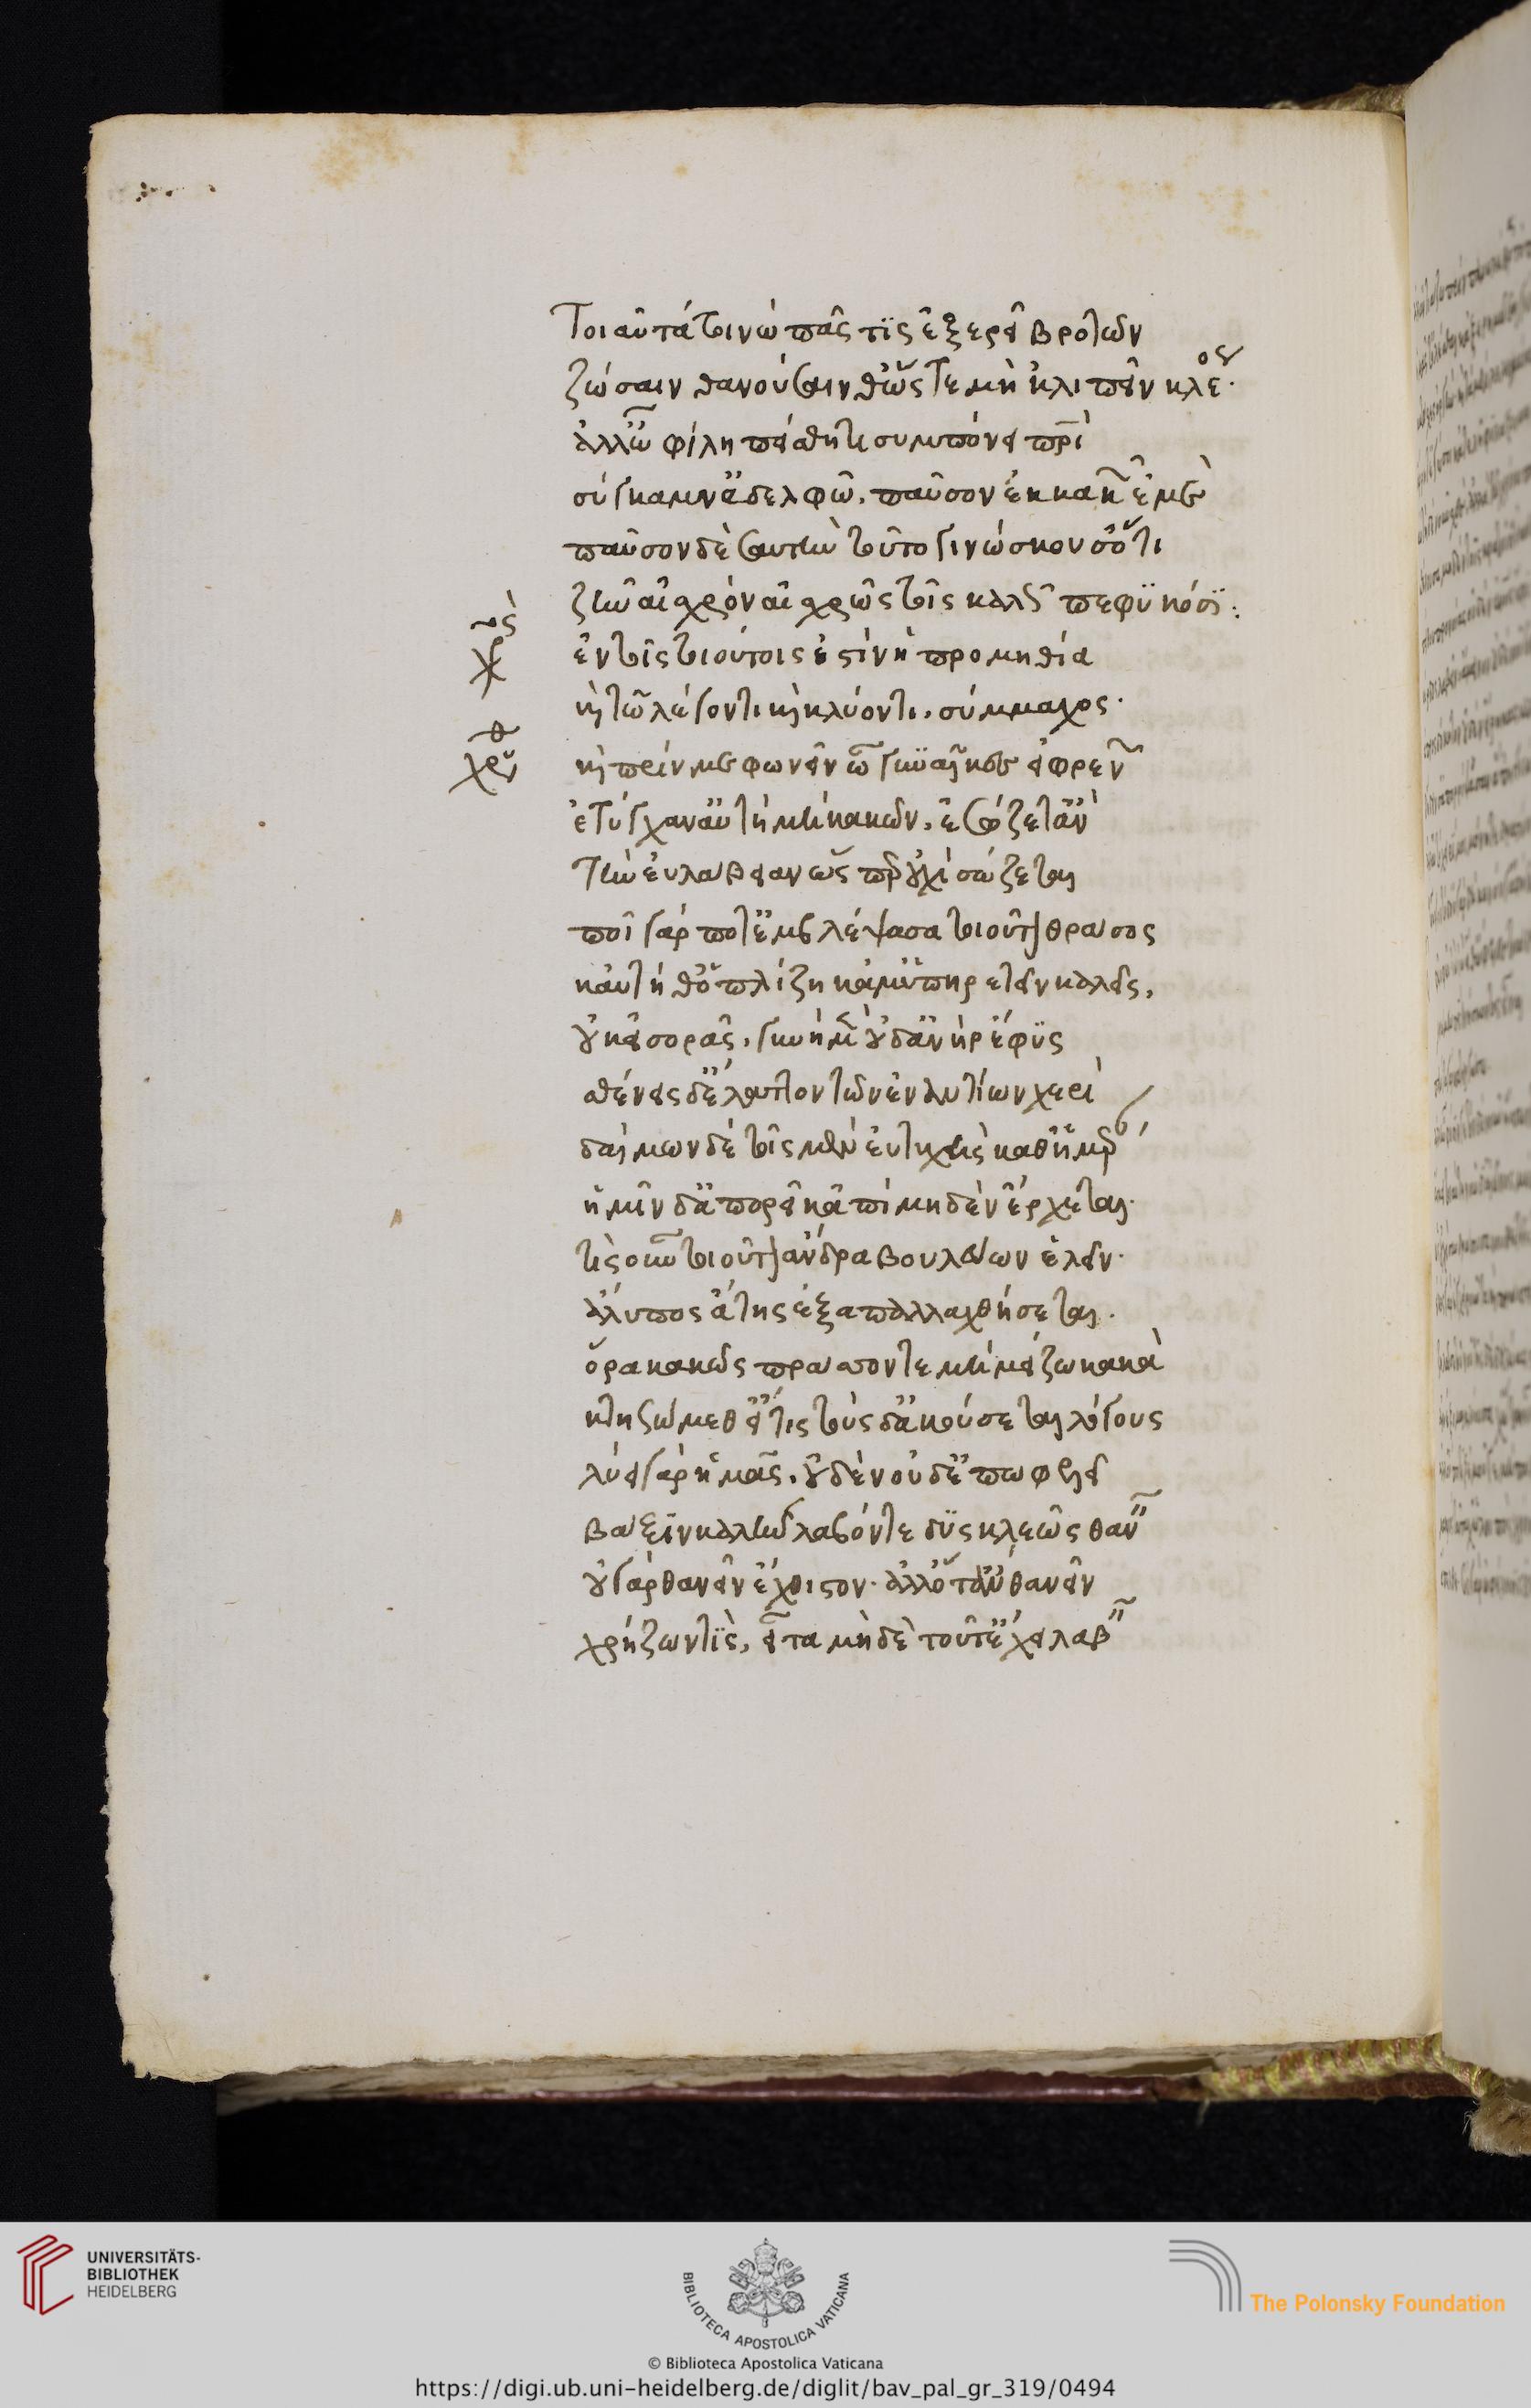 Τοιαῦτά τοι νὼ πᾶς τὶς ἐξερεῖ βροτῶν
ζώσαιν θανούσαιν θ' ὥστε μὴ κλιπεῖν κλέος.
ἀλλ' ὦ φίλη πείσθητι συμπόνει πρὶ
σύγκαμν' ἀδελφῶ. παῦσον ἐκ κακῶν ἐμὲ
παῦσον δὲ σαυτὴν τοῦτο γινώσκουσ' ὅτι
ζῆν αἰσχρὸν αἰσχρῶς τοῖς καλῶς πεφυκόσι:
χὸς
ἐν τοῖς τοιούτοις ἐστὶν ἡ προμηθία
καὶ τῶ λέγοντι καὶ κλύοντι, σύμμαχος.
χρυ
καὶ πρίν με φωνεῖν ὦ γυναῖκες εἰ φρενῶν
ἐτύγχαν' αὕτη μὴ κακῶν, ἐσώζετ' ἂν
τὴν εὐλάβειαν ὥσπερ οὐχὶ σώζεται
ποῖ γάρ ποτ' ἐμβλέψασα τοιοῦτον θράσος
καὐτή θ' ὁπλίζη κἄμ' ὑπηρετεῖν καλεῖς,
οὐκ εἰσορᾶς, γυνὴ μὲν οὐδ' ἀνὴρ ἔφυς
σθένεις δ' ἔλαττον τῶν ἐναντίων χερὶ
δαίμων δὲ τοῖς μὲν εὐτυχὴς καθ' ἡμέραν
ἡμῖν δ' ἀπορεῖ κἀπὶ μηδὲν ἔρχεται.
τίς οὖν τοιοῦτον ἄνδρα βουλεύων ἑλεῖν.
ἄλυπος ἄτης ἐξαπαλλαχθήσεται.
ὅρα κακῶς πράσσοντε μὴ μείζω κακὰ
κτησώμεθ' εἴ τις τοὺς δ' ἀκούσεται λόγους
λύει γὰρ ἡμᾶς. οὐδὲν οὐδ' ἐπωφελεῖ
βάξιν καλὴν λαβόντε δυσκλεῶς θανεῖν
οὐ γὰρ θανεῖν ἔχθιστον. ἀλλ' ὅταν θανεῖν
χρήζων τὶς, εἶτα μὴ δὲ τοῦτ' ἔχει λαβεῖν
UNIVERSITÄTS-
BIBLIOTHEK
HEIDELBERG
BIBLIOTECA APOSTOLICA VATICANA
The Polonsky Foundation
© Biblioteca Apostolica Vaticana
https://digi.ub.uni-heidelberg.de/diglit/bav_pal_gr_319/0494